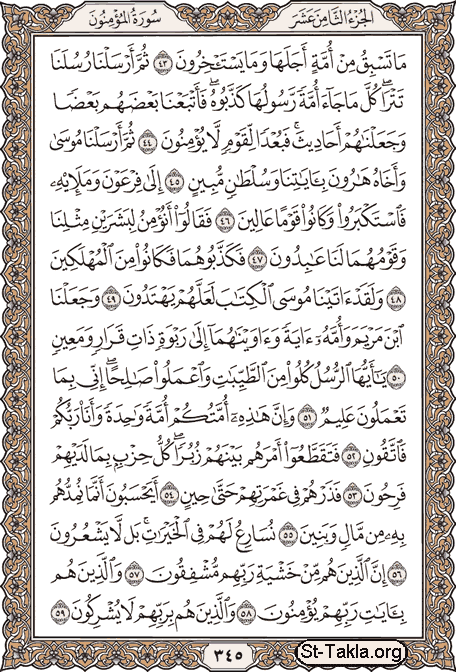 سُورَةُ المُؤْمِنُونَ الجُزْءُ الثَّامِنَ عَشَرَ
مَا تَسْبِقُ مِنْ أُمَّةٍ أَجَلَهَا وَمَا يَسْتَـْٔخِرُونَ ٤٣ ثُمَّ أَرْسَلْنَا رُسُلَنَا
تَتْرَا كُلَّ مَا جَآءَ أُمَّةً رَّسُولُهَا كَذَّبُوهُ ۚ فَأَتْبَعْنَا بَعْضَهُم بَعْضًا
وَجَعَلْنَٰهُمْ أَحَادِيثَ ۚ فَبُعْدًا لِّقَوْمٍ لَّا يُؤْمِنُونَ ٤٤ ثُمَّ أَرْسَلْنَا مُوسَىٰ
وَأَخَاهُ هَٰرُونَ بِـَٔايَٰتِنَا وَسُلْطَٰنٍ مُّبِينٍ ٤٥ إِلَىٰ فِرْعَوْنَ وَمَلَإِي۟هِۦ
فَٱسْتَكْبَرُوا۟ وَكَانُوا۟ قَوْمًا عَالِينَ ٤٦ فَقَالُوٓا۟ أَنُؤْمِنُ لِبَشَرَيْنِ مِثْلِنَا
وَقَوْمُهُمَا لَنَا عَٰبِدُونَ ٤٧ فَكَذَّبُوهُمَا فَكَانُوا۟ مِنَ ٱلْمُهْلَكِينَ
٤٨ وَلَقَدْ ءَاتَيْنَا مُوسَى ٱلْكِتَٰبَ لَعَلَّهُمْ يَهْتَدُونَ ٤٩ وَجَعَلْنَا
ٱبْنَ مَرْيَمَ وَأُمَّهُۥٓ ءَايَةً وَءَاوَيْنَٰهُمَآ إِلَىٰ رَبْوَةٍ ذَاتِ قَرَارٍ وَمَعِينٍ
٥٠ يَٰٓأَيُّهَا ٱلرُّسُلُ كُلُوا۟ مِنَ ٱلطَّيِّبَٰتِ وَٱعْمَلُوا۟ صَٰلِحًا ۖ إِنِّى بِمَا
تَعْمَلُونَ عَلِيمٌ ٥١ وَإِنَّ هَٰذِهِۦٓ أُمَّتُكُمْ أُمَّةً وَٰحِدَةً وَأَنَا۠ رَبُّكُمْ
فَٱتَّقُونِ ٥٢ فَتَقَطَّعُوٓا۟ أَمْرَهُم بَيْنَهُمْ زُبُرًا ۖ كُلُّ حِزْبٍۭ بِمَا لَدَيْهِمْ
فَرِحُونَ ٥٣ فَذَرْهُمْ فِى غَمْرَتِهِمْ حَتَّىٰ حِينٍ ٥٤ أَيَحْسَبُونَ أَنَّمَا نُمِدُّهُم
بِهِۦ مِن مَّالٍ وَبَنِينَ ٥٥ نُسَارِعُ لَهُمْ فِى ٱلْخَيْرَٰتِ ۚ بَل لَّا يَشْعُرُونَ
٥٦ إِنَّ ٱلَّذِينَ هُم مِّنْ خَشْيَةِ رَبِّهِم مُّشْفِقُونَ ٥٧ وَٱلَّذِينَ هُم
بِـَٔايَٰتِ رَبِّهِمْ يُؤْمِنُونَ ٥٨ وَٱلَّذِينَ هُم بِرَبِّهِمْ لَا يُشْرِكُونَ ٥٩
٣٤٥
St-Takla.org